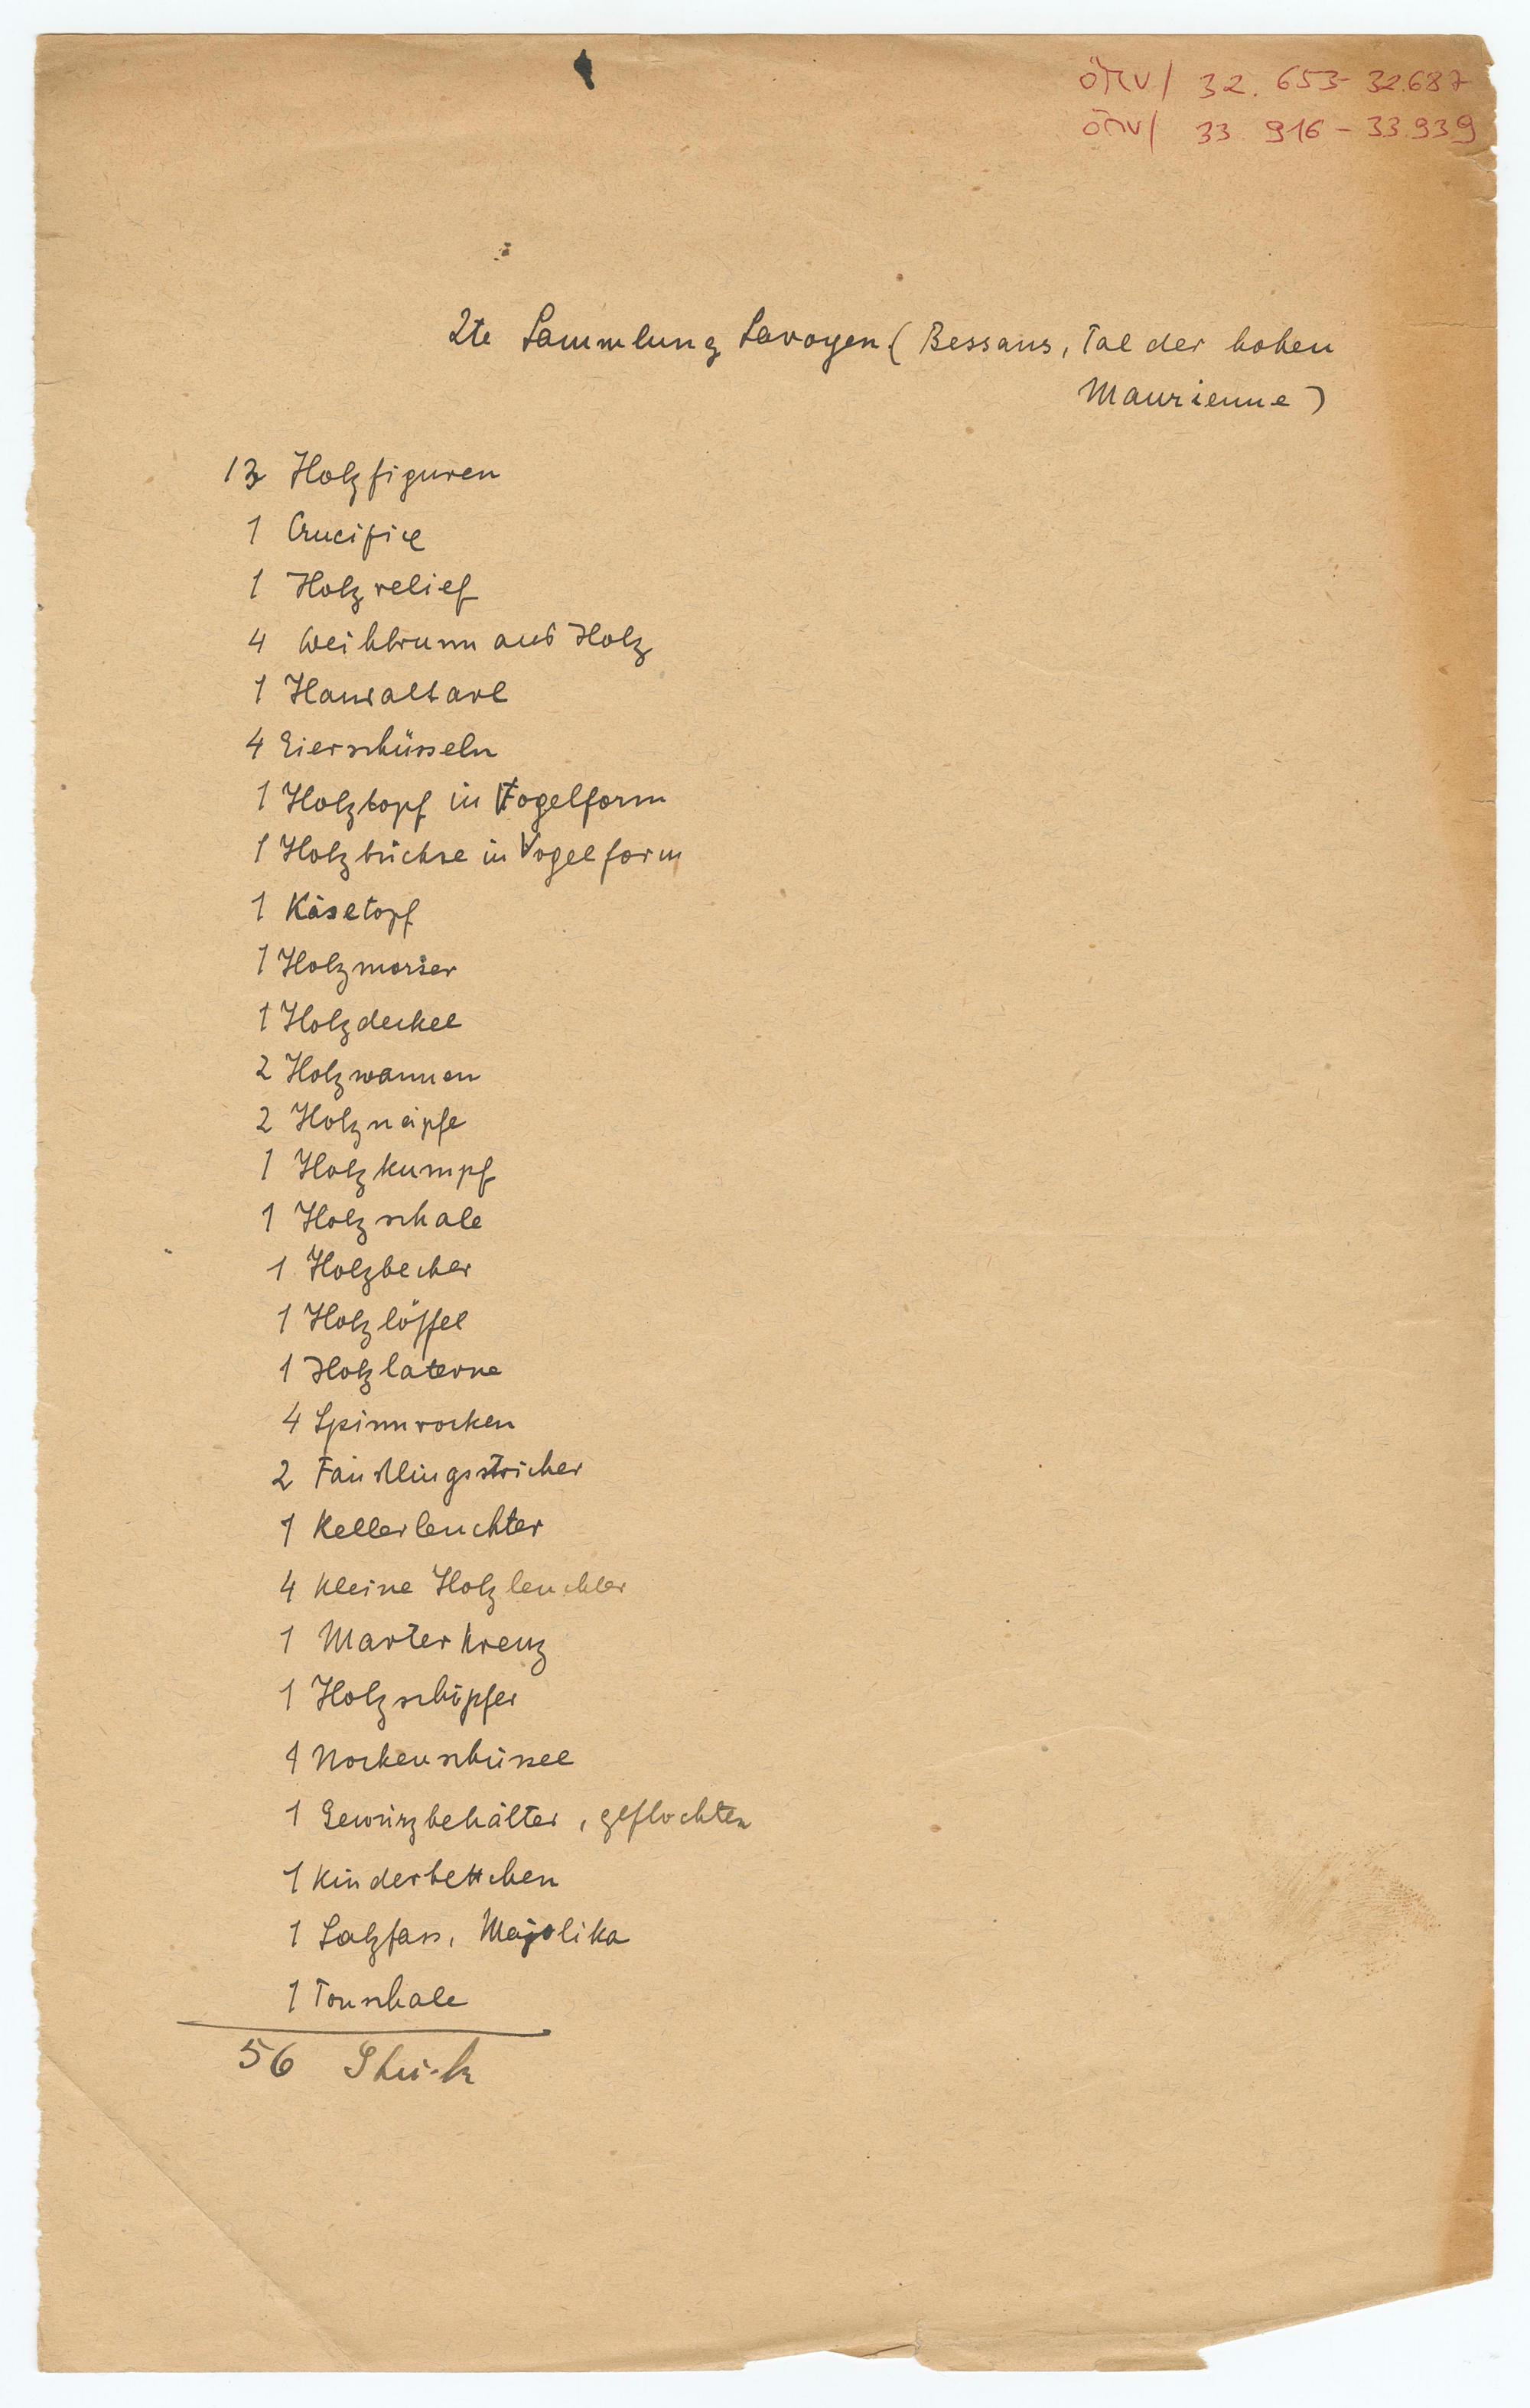 ÖMV/ 32.653-32.687
ÖMV/ 33.916-33.939
2te Sammlung Savoyen (Bessans, Tal der hohen
Maurienne)
13 Holzfiguren
1 Crucifix
1 Holzrelief
4 Weihbrunn aus Holz
1 Hausaltarl
4 Eierschüsseln
1 Holztopf in Vogelform
1 Holzbüchse in Vogelform
1 Käsetopf
1 Holzmörser
1 Holzdeckel
2 Holzwannen
2 Holznäpfe
1 Holzkumpf
1 Holzschale
1 Holzbecher
1 Holzlöffel
1 Holzlaterne
4 Spinnrocken
2
1 Kellerleuchter
4 kleine Holzleuchter
1 Marterkreuz
1 Holzschöpfer
1 Nockenschüssel
1 Gewürzbehälter, geflochten
1 Kinderbettchen
1 Salzfass, Majolika
1 Tonschale
56 Stück